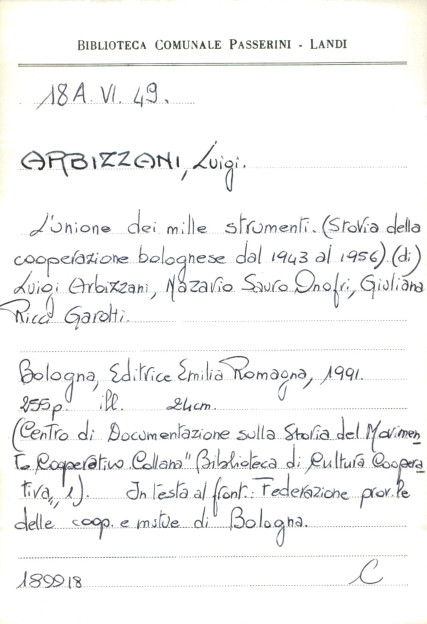 BIBLIOTECA COMUNALE PASSERINI - LANDI
18A. VI. 49.
ARBIZZANI, Luigi.
L'unione dei mille strumenti. (Storia della
cooperazione bolognese dal 1943 al 1956) (di)
Luigi Arbizzani, Nazario Sauro Onofri, Giuliana
Ricci Garotti.
Bologna, Editrice Emilia Romagna, 1991.
255p. ill. 24cm.
(Centro di Documentazione sulla Storia del Movimen
to Cooperativo Collana "Biblioteca di Cultura Coopera
tiva„, 1). In testa al front.: Federazione prov.le
delle coop. e mutue di Bologna.
189918 C